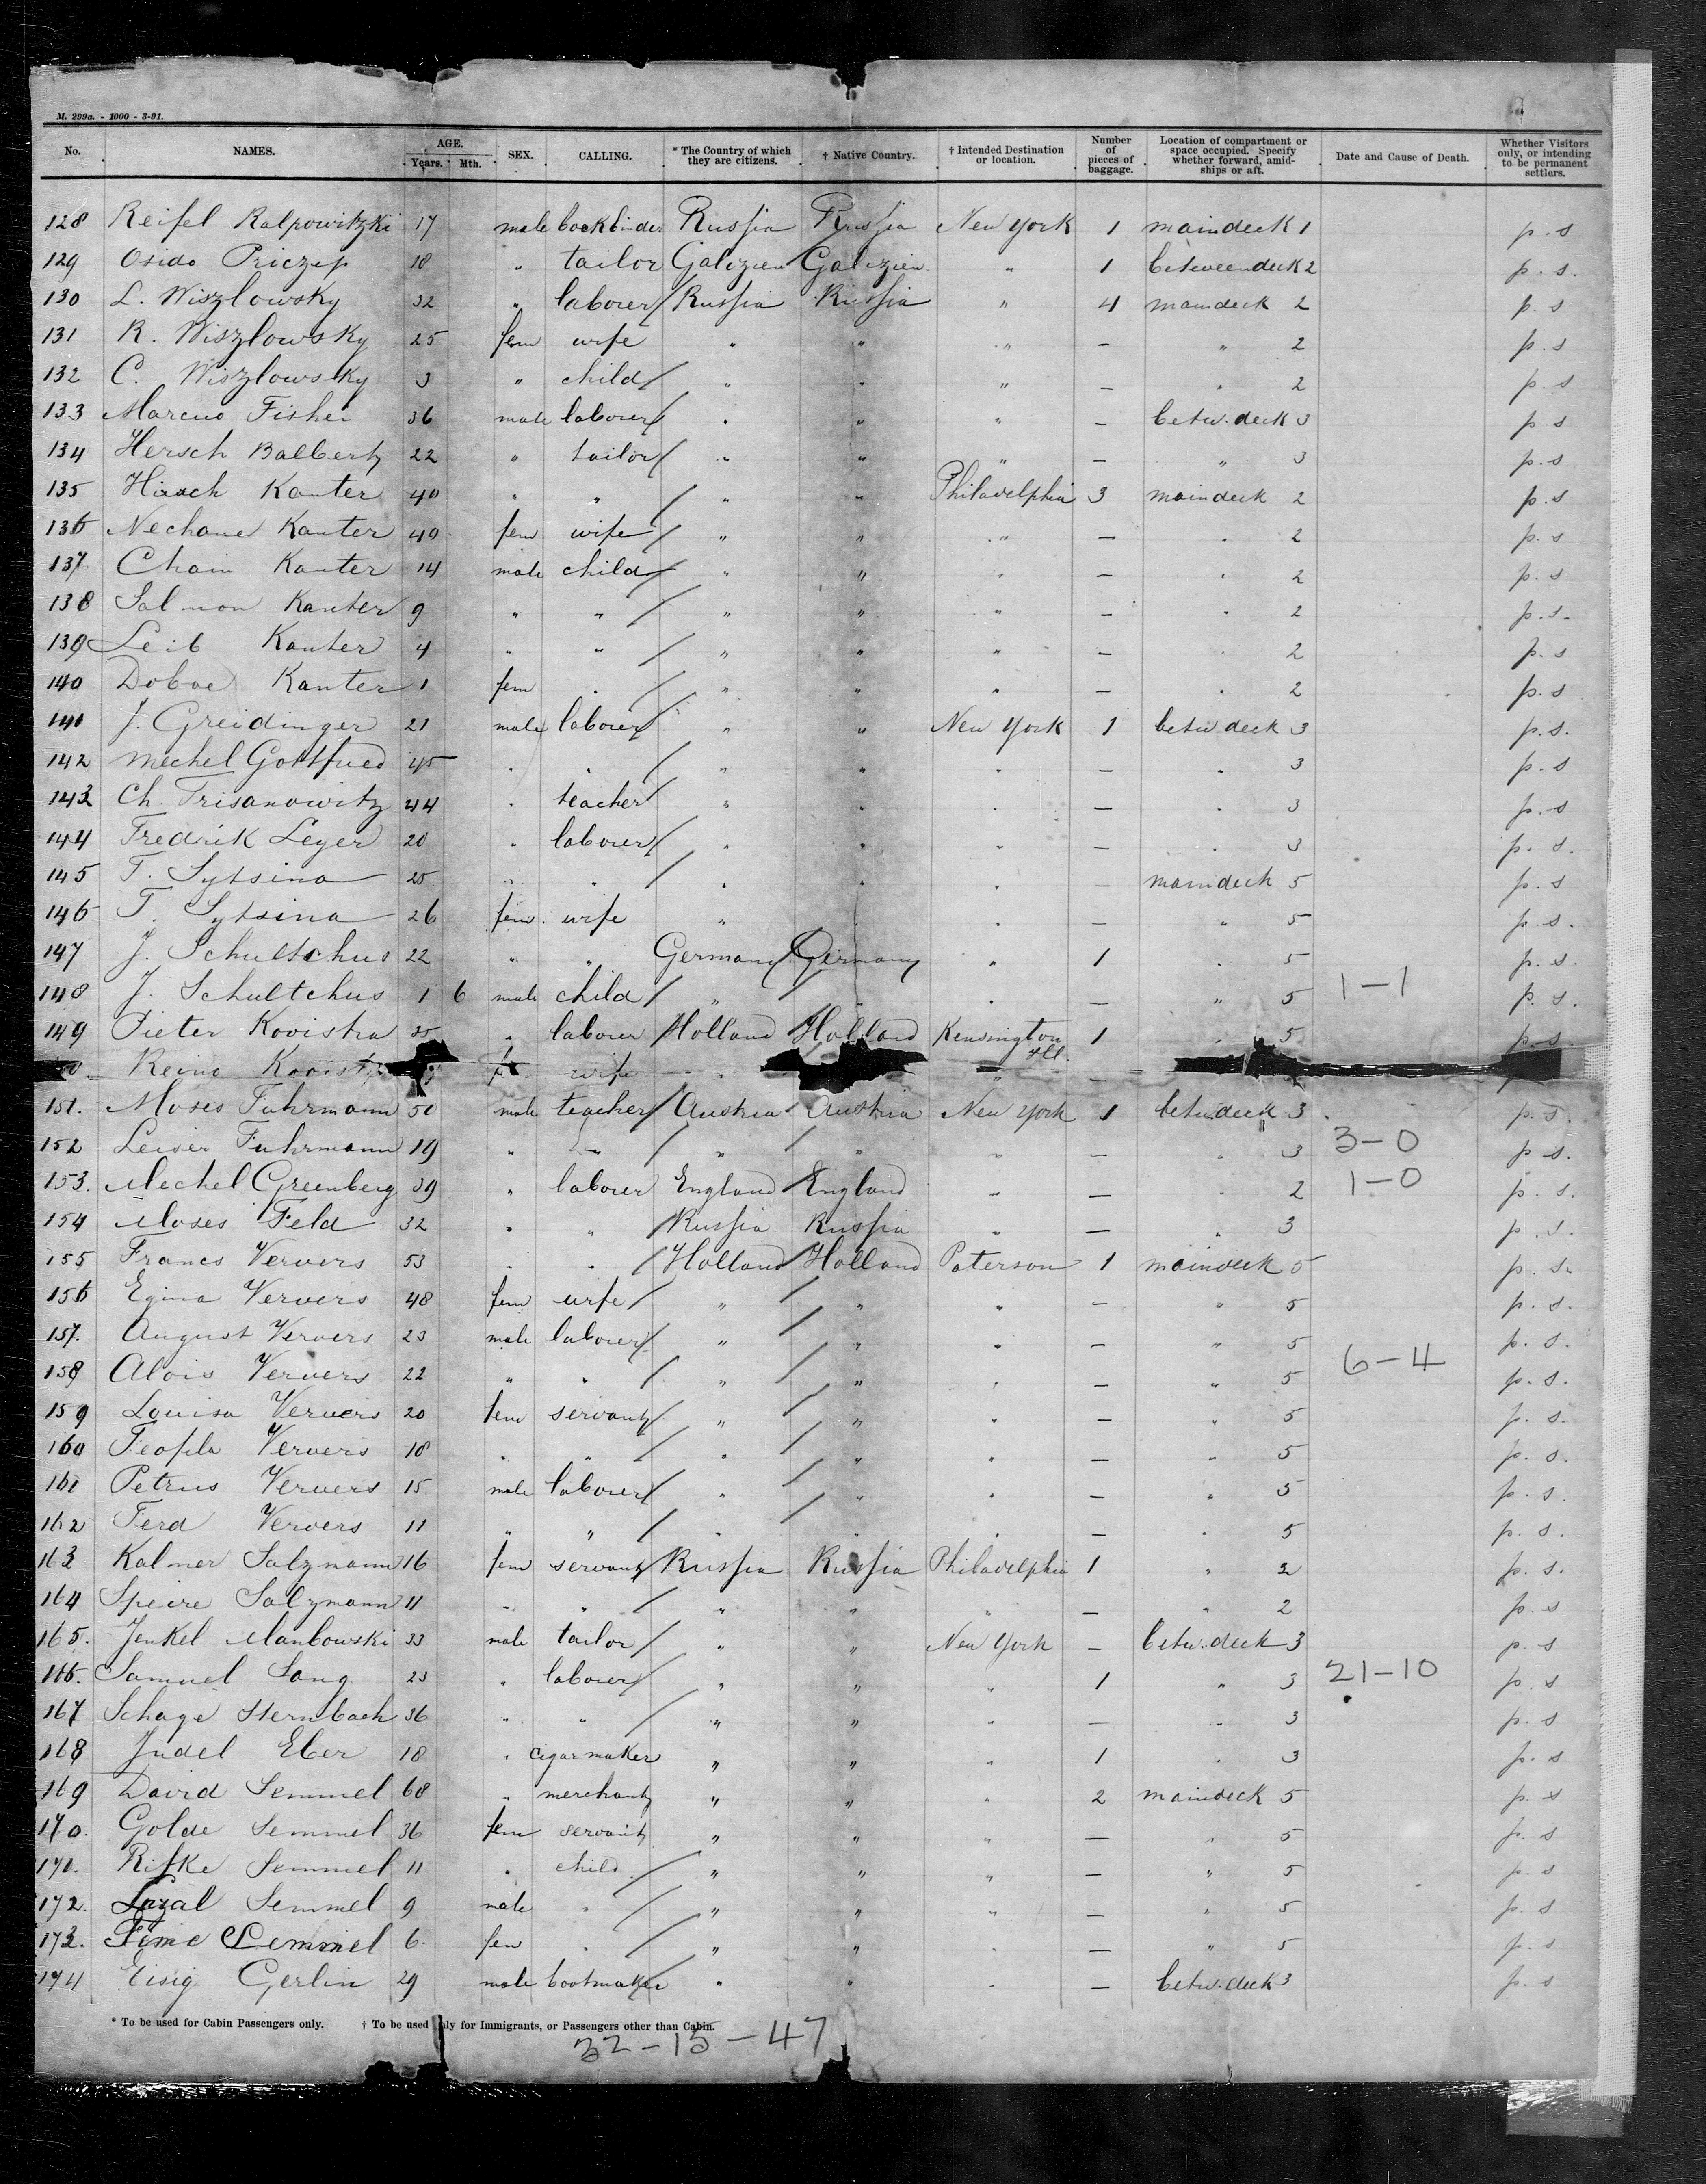 M. 299a. - 1000 - 3-91.
No. NAMES. AGE. Years. Mth. SEX. CALLING. * The Country of which they are citizens. † Native Country. † Intended Destination or location. Number of pieces of baggage. Location of compartment or space occupied. Specify whether forward, amidships or aft. Date and Cause of Death. Whether Visitors only, or intending to be permanent settlers.
128 Reifel Kalpowitzki 17 male bookbinder Russia Russia New York 1 maindeck 1 p.s
129 Osido Priczep 18 " tailor Galizien Galizien " 1 betweendeck 2 p.s.
130 L. Wiszlowsky 32 " laborer Russia Russia " 4 maindeck 2 p.s
131 R. Wiszlowsky 25 fem wife " " " — " 2 p.s
132 C. Wiszlowsky 3 " child " " " — " 2 p.s
133 Marcus Fisher 36 male laborer " " " — betw. deck 3 p s
134 Hersch Balbertz 22 " tailor " " " — " 3 p.s
135 Hirsch Kanter 40 " " " " Philadelphia 3 maindeck 2 p.s
136 Nechane Kanter 40 fem wife " " " — " 2 p.s
137 Chaim Kanter 14 male child " " " — " 2 p.s
138 Salmon Kanter 9 " " " " " — " 2 p.s.
139 Leib Kanter 4 " " " " " — " 2 p.s
140 Doboe Kanter 1 fem " " " " — " 2 p.s
141 J. Greidinger 21 male laborer " " New York 1 betw deck 3 p.s.
142 Mechel Gottfried 45 " " " " " — " 3 p.s
143 Ch. Trisanowitz 44 " teacher " " " — " 3 p.s
144 Fredrik Leyer 20 " laborer " " " — " 3 p. s.
145 T. Sytsina 25 " " " " " — maindeck 5 p.s
146 T. Sytsina 26 fem. wife " " " — " 5 p.s.
147 J. Schultchus 22 " " Germany Germany " 1 " 5 p.s.
148 J. Schultchus 1 6 male child " " " — " 5 1-1 p.s.
149 Pieter Kooistra 25 " laborer Holland Holland Kensington Ill. 1 " 5 p.s.
Reino wife " —
151. Moses Fuhrmann 50 male teacher Austria Austria New York 1 betw.deck 3 p.s.
152 Leiser Fuhrmann 19 " " " " " — " 3 3-0 p s.
153. Mechel Greenberg 39 " laborer England England " — " 2 1-0 p. s.
154 Moses Feld 32 " " Russia Russia " — " 3 p.s.
155 Francs Ververs 53 " " Holland Holland Paterson 1 maindeck 5 p.s.
156 Egina Ververs 48 fem wife " " " — " 5 p.s.
157. August Ververs 23 male laborer " " " — " 5 p.s.
158 Alois Ververs 22 " " " " " — " 5 6-4 p.s.
159 Louisa Ververs 20 fem servant " " " — " 5 p.s.
160 Teofila Ververs 18 " " " " " — " 5 p.s.
161 Petrus Ververs 15 male laborer " " " — " 5 p.s.
162 Ferd Ververs 11 " " " " " — " 5 p.s.
163 Kalmer Salzmann 16 fem servant Russia Russia Philadelphia 1 " 2 p.s.
164 Speire Salzmann 11 " " " " " — " 2 p.s
165. Jenkel Manbowski 33 male tailor " " New York — betw.deck 3 p.s
166. Samuel Lang 23 " laborer " " " 1 " 3 21-10 p.s
167 Schage Sternbach 36 " " " " " — " 3 p.s
168 Judel Eber 18 " cigarmaker " " " 1 " 3 p.s
169 David Semmel 68 " merchant " " " 2 maindeck 5 p.s
170. Golde Semmel 36 fem servant " " " — " 5 p.s
171. Rifke Semmel 11 " child " " " — " 5 p.s
172. Lazal Semmel 9 male " " " " — " 5 p.s
173. Feme Semmel 6 fem " " " " — " 5 p.s
174 Eisig Gerlin 29 male bootmaker " " " — betw.deck 3 p.s
* To be used for Cabin Passengers only. † To be used only for Immigrants, or Passengers other than Cabin.
32-15-47